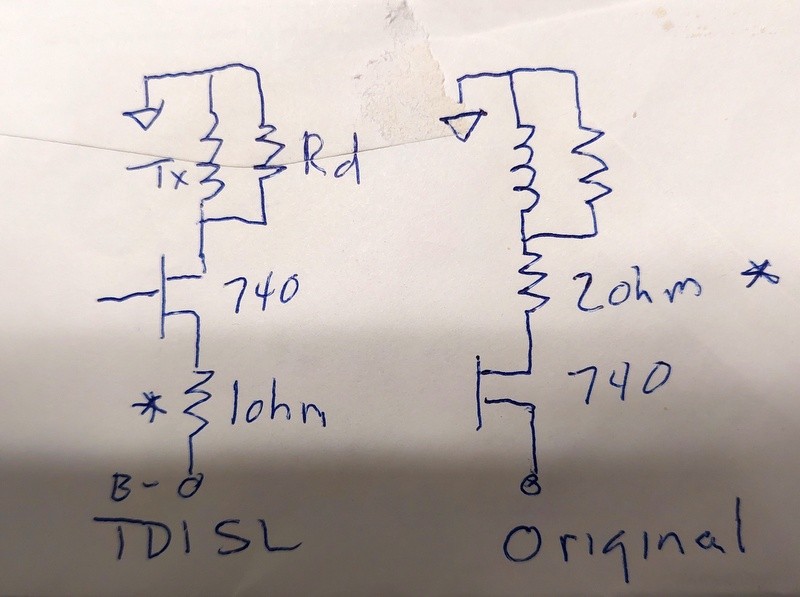 Tx
Rd
740
* 1ohm
B-
TDISL
2ohm *
740
B
Original